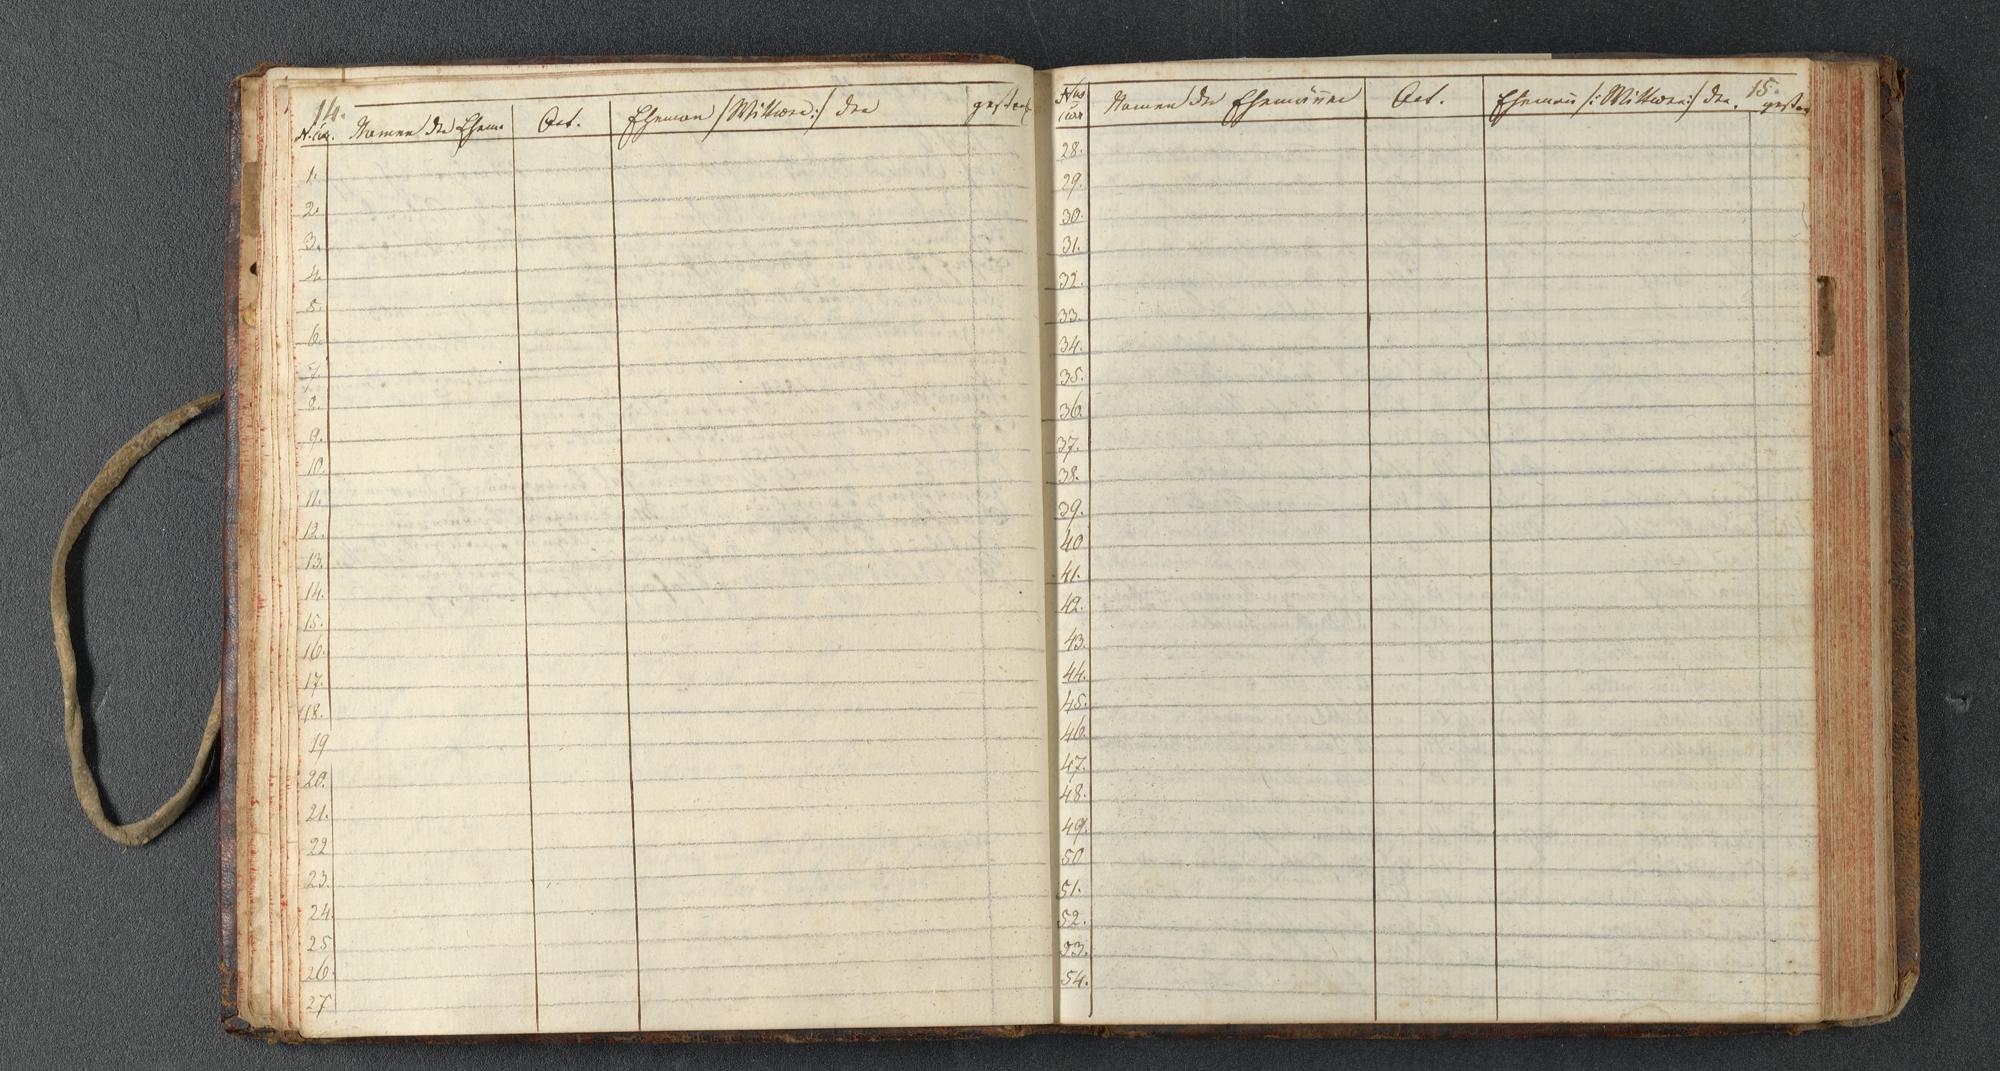 14.
N. cur. Namen der Ehem. Ort. Eheman /:Wittwer:/ der gestor
1.
2.
3.
4.
5.
6.
7.
8.
9.
10.
11.
12.
13.
14.
15.
16.
17.
18.
19
20.
21.
22
23.
24.
25
26.
27
15.
Nus cur Namen der Ehemänner Ort. Eheman /:Wittwer:/ der. gestor
28.
29.
30.
31.
32.
33.
34.
35.
36.
37.
38.
39.
40
41.
42.
43.
44.
45.
46.
47.
48.
49.
50
51.
52.
53.
54.